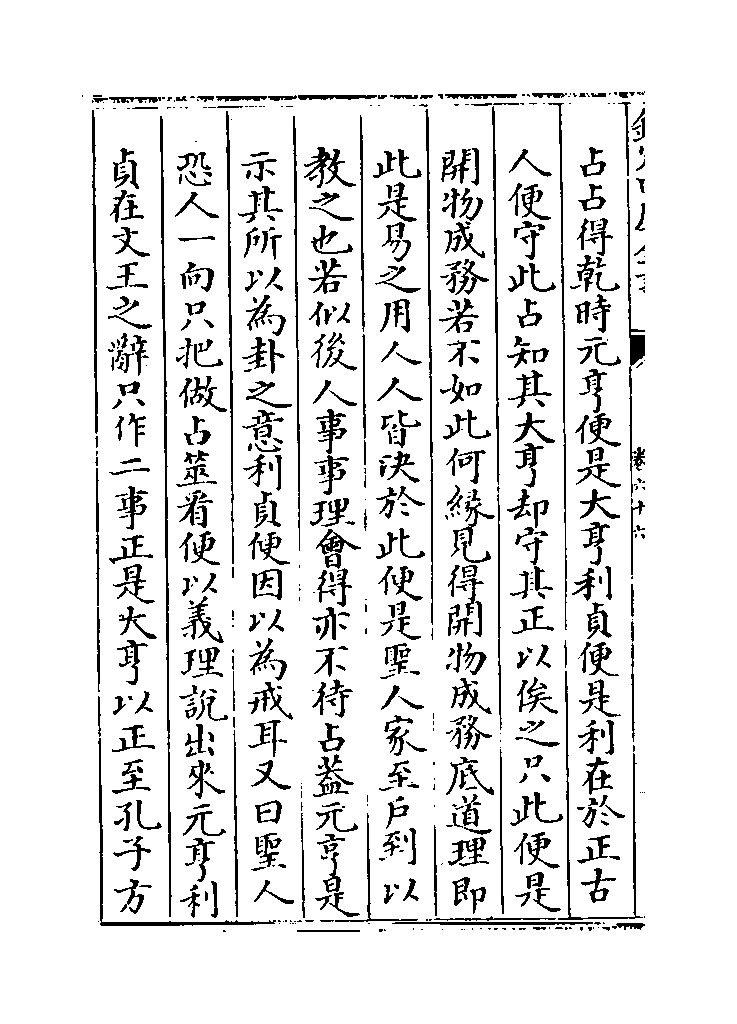 占占得乾時元亨便是大亨利貞便是利在於正古
人便守此占知其大亨却守其正以俟之只此便是
開物成務若不如此何緣見得開物成務底道理即
此是易之用人人皆決於此便是聖人家至戶到以
教之也若似後人事事理會得亦不待占葢元亨是
示其所以為卦之意利貞便因以為戒耳又曰聖人
恐人一向只把做占筮看便以義理說出來元亨利
貞在文王之辭只作二事正是大亨以正至孔子方
卷六十六